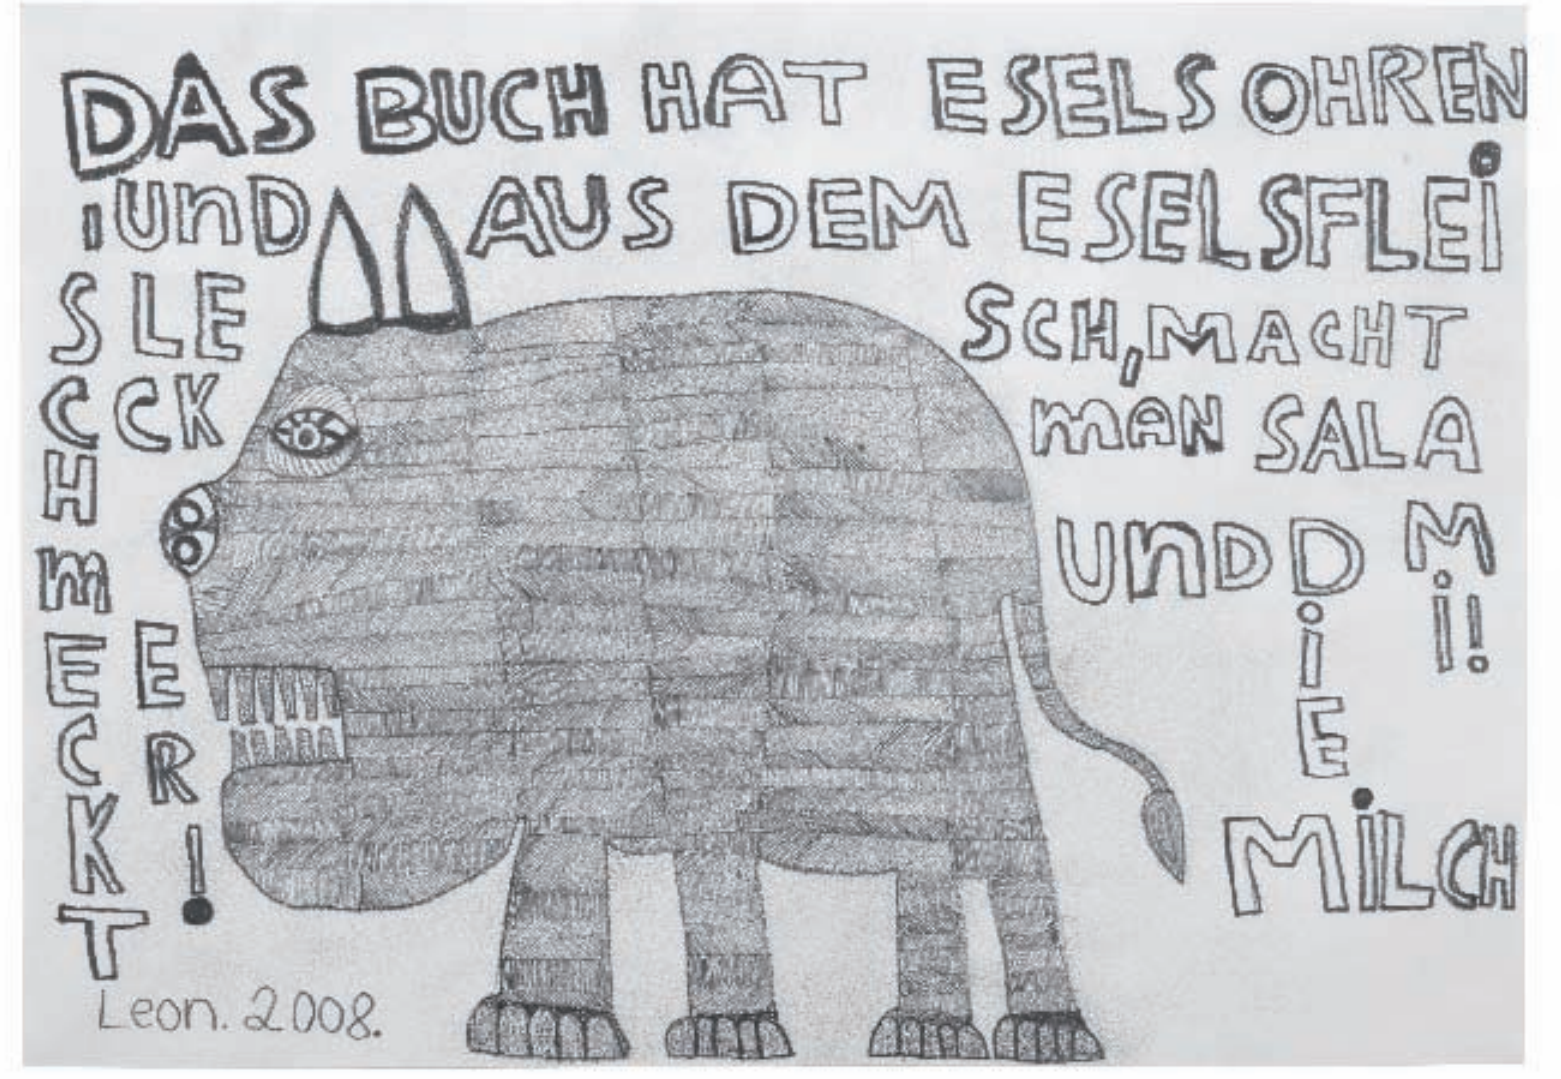 DAS BUCH HAT ESELSOHREN
UnD AUS DEM ESELSFLEi
SCH, MACHT
mAN SALA
Mi!
UnD DiE
MiLCH
SCHmECKT
LE
CK
ER!
Leon. 2008.